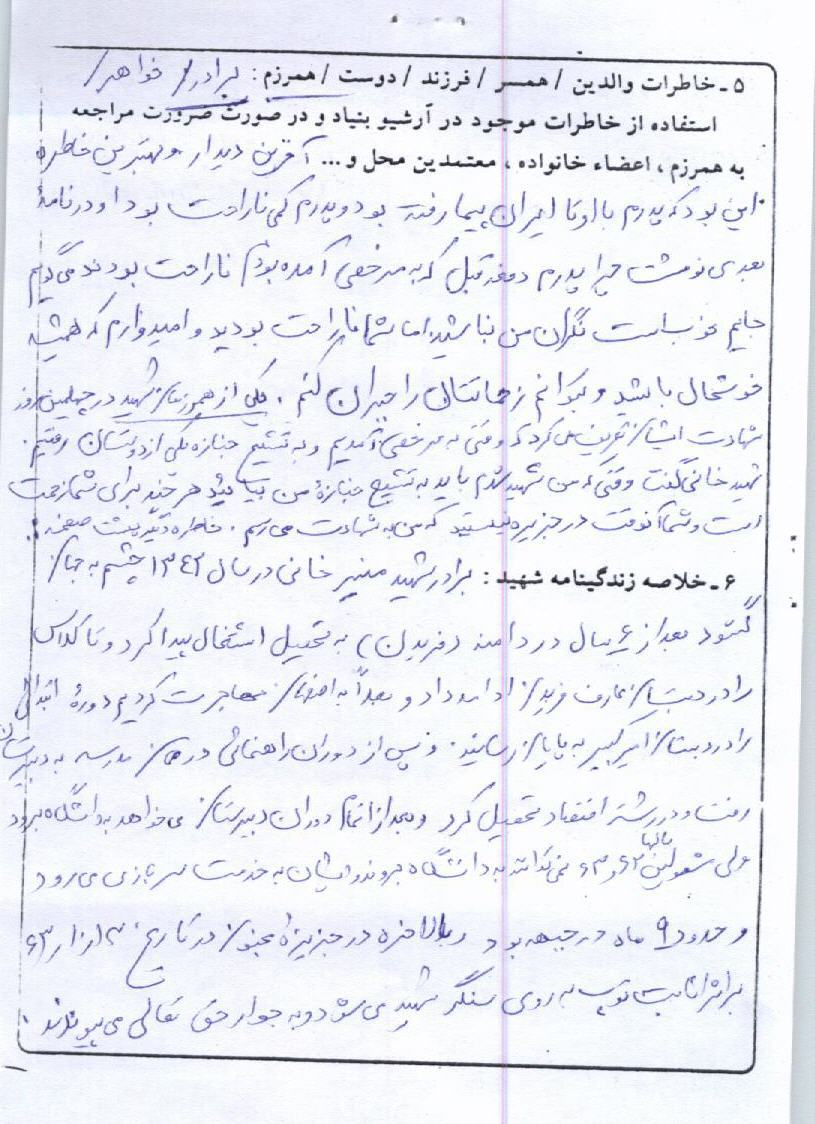 ۵ ـ خاطرات والدین / همسر / فرزند / دوست / همرزم : برادر / خواهر /
استفاده از خاطرات موجود در آرشیو بنیاد و در صورت ضرورت مراجعه
به همرزم ، اعضاء خانواده ، معتمدین محل و ... آخرین دیدار و بهترین خاطره
این بود که پدرم با او تا ایران پیما رفته بود و پدرم کمی ناراحت بود او در نامهٔ
بعدی نوشت چرا پدرم دفعه قبل که به مرخصی آمده بودم ناراحت بودند می‌گویم
جایم خوب است نگران من نباشید اما شما ناراحت بودید و امیدوارم که همیشه
خوشحال باشید و بتوانم زحماتتان را جبران کنم . یکی از همرزمان شهید در چهلمین روز
شهادت ایشان تعریف می‌کرد که وقتی به مرخصی آمدیم و به تشییع جنازه یکی از دوستان رفتیم .
شهید خانی گفت وقتی که من شهید شدم باید به تشییع جنازهٔ من بیائید هر چند برای شما زحمت
است و شما آنوقت در جزیره نیستید که من به شهادت می‌رسم . خاطره دیگر پشت صفحه :
۶ ـ خلاصه زندگینامه شهید : برادر شهید منیر خانی در سال ۱۳۴۲ چشم به جهان
گشود بعد از ۶ سال در دامنه (فریدن) به تحصیل اشتغال پیدا کرد و تا کلاس
را در دبستان عارف فریدن ادامه داد و بعداً به اصفهان مهاجرت کردیم دورهٔ ابتدائی
را در دبستان امیرکبیر به پایان رسانید . و پس از دوران راهنمائی در مدرسه به دبیرستان
رفت و در رشته اقتصاد تحصیل کرد و بعد از اتمام دوران دبیرستان می‌خواهد به دانشگاه برود
ولی مشمولین سالهای ۶۲ و ۶۳ نمی‌توانند به دانشگاه بروند و ایشان به خدمت سربازی می‌رود
و حدود ۹ ماه در جبهه بود و بالاخره در جزیرهٔ مجنون در تاریخ
بر اثر اصابت توپ به روی سنگر شهید می‌شود و به جوار حق تعالی می‌پیوندند .